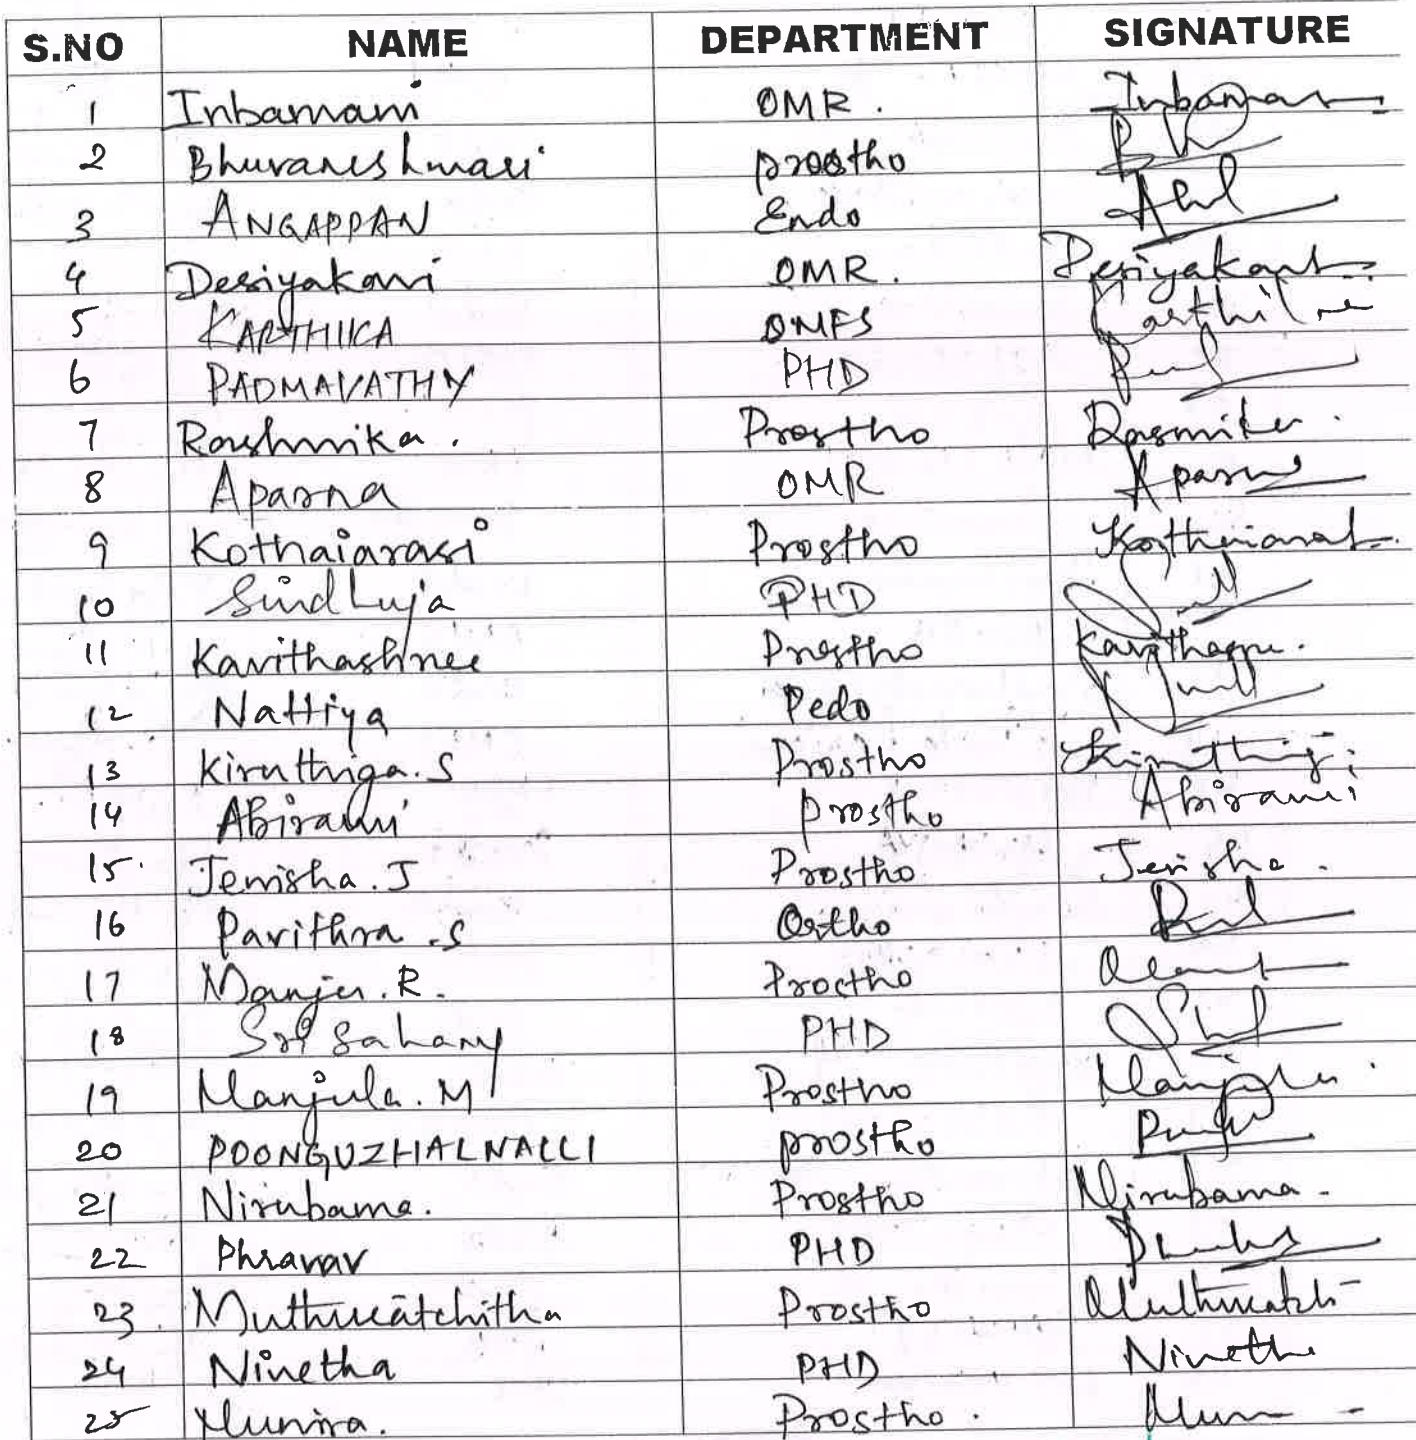 S.NO NAME DEPARTMENT SIGNATURE
1 Inbamani OMR. Inbaman
2 Bhuvaneshwari prostho
3 ANGAPPAN Endo
4 Desiyakani OMR. Desiyakani
5 KARTHIKA OMFS Karthika
6 PADMAVATHY PHD
7 Rashmika. Prostho Rasmika.
8 Aparna OMR Aparna
9 Kothaiarasi Prostho Kothaiarasi
10 Sindhuja PHD
11 Kavithashree Prostho
12 Nattiya Pedo
13 Kiruthiga.S Prostho
14 Abirami prostho Abirami
15. Jenisha.J Prostho Jenisha.
16 Pavithra.S Ortho
17 Manju.R. Prostho
18 Sri Sahany PHD
19 Manjula.M Prostho Manjula.
20 POONGUZHALNALLI prostho
21 Nirubama. Prostho Nirubama-
22 Phravav PHD
23. Muthucatchitha Prostho
24 Ninetha PHD Ninetha
25 Munira. Prostho.